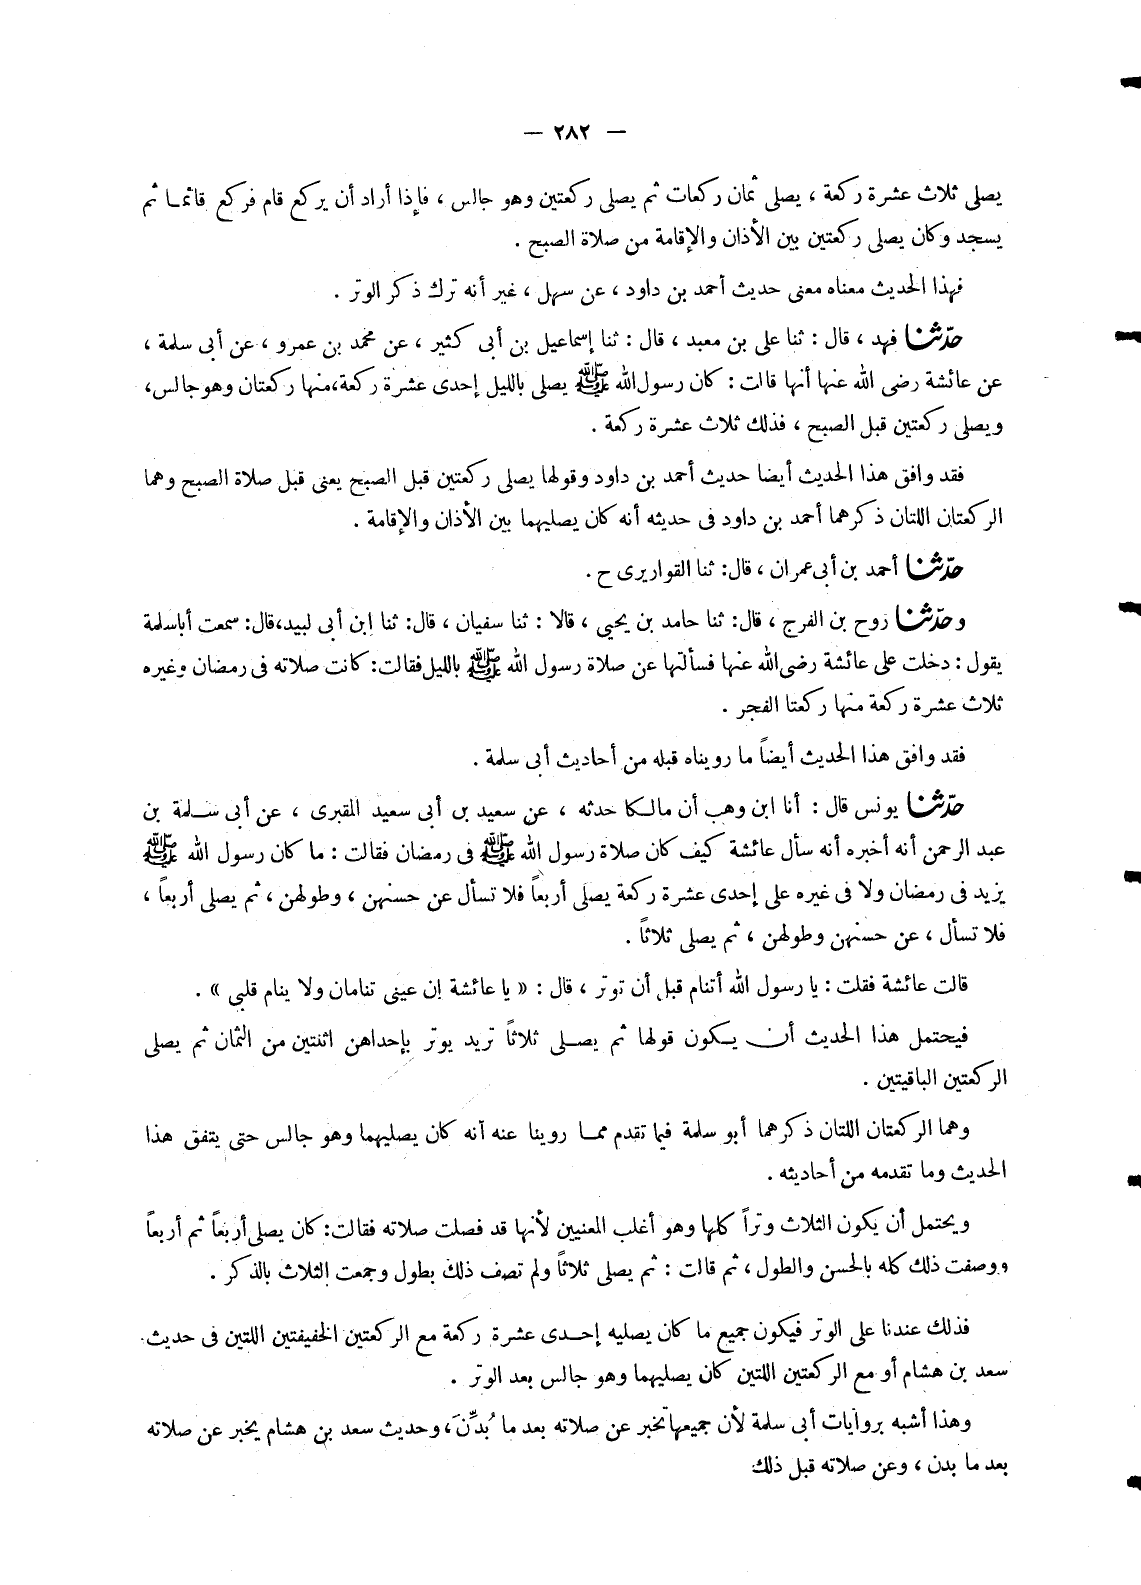 — ٢٨٢ —
يصلى ثلاث عشرة ركعة ، يصلى ثمان ركعات ثم يصلى ركعتين وهو جالس ، فإذا أراد أن يركع قام فركع قائما ثم
يسجد وكان يصلى ركعتين بين الأذان والإقامة من صلاة الصبح .
فهذا الحديث معناه معنى حديث أحمد بن داود ، عن سهل ، غير أنه ترك ذكر الوتر .
حدّثنا فهد ، قال : ثنا على بن معبد ، قال : ثنا إسماعيل بن أبى كثير ، عن محمد بن عمرو ، عن أبى سلمة ،
عن عائشة رضى الله عنها أنها قالت : كان رسول الله ﷺ يصلى بالليل إحدى عشرة ركعة، منها ركعتان وهو جالس،
ويصلى ركعتين قبل الصبح ، فذلك ثلاث عشرة ركعة .
فقد وافق هذا الحديث أيضا حديث أحمد بن داود وقولها يصلى ركعتين قبل الصبح يعنى قبل صلاة الصبح وهما
الركعتان اللتان ذكرهما أحمد بن داود فى حديثه أنه كان يصليهما بين الأذان والإقامة .
حدّثنا أحمد بن أبى عمران ، قال: ثنا القواريرى ح .
وحدّثنا روح بن الفرج ، قال: ثنا حامد بن يحيى ، قالا : ثنا سفيان ، قال: ثنا ابن أبى لبيد، قال: سمعت أبا سلمة
يقول : دخلت على عائشة رضى الله عنها فسألتها عن صلاة رسول الله ﷺ بالليل فقالت: كانت صلاته فى رمضان وغيره
ثلاث عشرة ركعة منها ركعتا الفجر .
فقد وافق هذا الحديث أيضاً ما رويناه قبله من أحاديث أبى سلمة .
حدّثنا يونس قال : أنا ابن وهب أن مالكا حدثه ، عن سعيد بن أبى سعيد المقبرى ، عن أبى سلمة بن
عبد الرحمن أنه أخبره أنه سأل عائشة كيف كان صلاة رسول الله ﷺ فى رمضان فقالت : ما كان رسول الله ﷺ
يزيد فى رمضان ولا فى غيره على إحدى عشرة ركعة يصلى أربعاً فلا تسأل عن حسنهن ، وطولهن ، ثم يصلى أربعاً ،
فلا تسأل ، عن حسنهن وطولهن ، ثم يصلى ثلاثاً .
قالت عائشة فقلت : يا رسول الله أتنام قبل أن توتر ، قال : « يا عائشة إن عينى تنامان ولا ينام قلبى » .
فيحتمل هذا الحديث أن يكون قولها ثم يصلى ثلاثاً تريد يوتر بإحداهن اثنتين من الثمان ثم يصلى
الركعتين الباقيتين .
وهما الركعتان اللتان ذكرهما أبو سلمة فيما تقدم مما روينا عنه أنه كان يصليهما وهو جالس حتى يتفق هذا
الحديث وما تقدمه من أحاديثه .
ويحتمل أن يكون الثلاث وتراً كلها وهو أغلب المعنيين لأنها قد فصلت صلاته فقالت: كان يصلى أربعاً ثم أربعاً
ووصفت ذلك كله بالحسن والطول ، ثم قالت : ثم يصلى ثلاثاً ولم تصف ذلك بطول وجمعت الثلاث بالذكر .
فذلك عندنا على الوتر فيكون جميع ما كان يصليه إحدى عشرة ركعة مع الركعتين الخفيفتين اللتين فى حديث
سعد بن هشام أو مع الركعتين اللتين كان يصليهما وهو جالس بعد الوتر .
وهذا أشبه بروايات أبى سلمة لأن جميعها تخبر عن صلاته بعد ما بُدِّنَ ، وحديث سعد بن هشام يخبر عن صلاته
بعد ما بدن ، وعن صلاته قبل ذلك